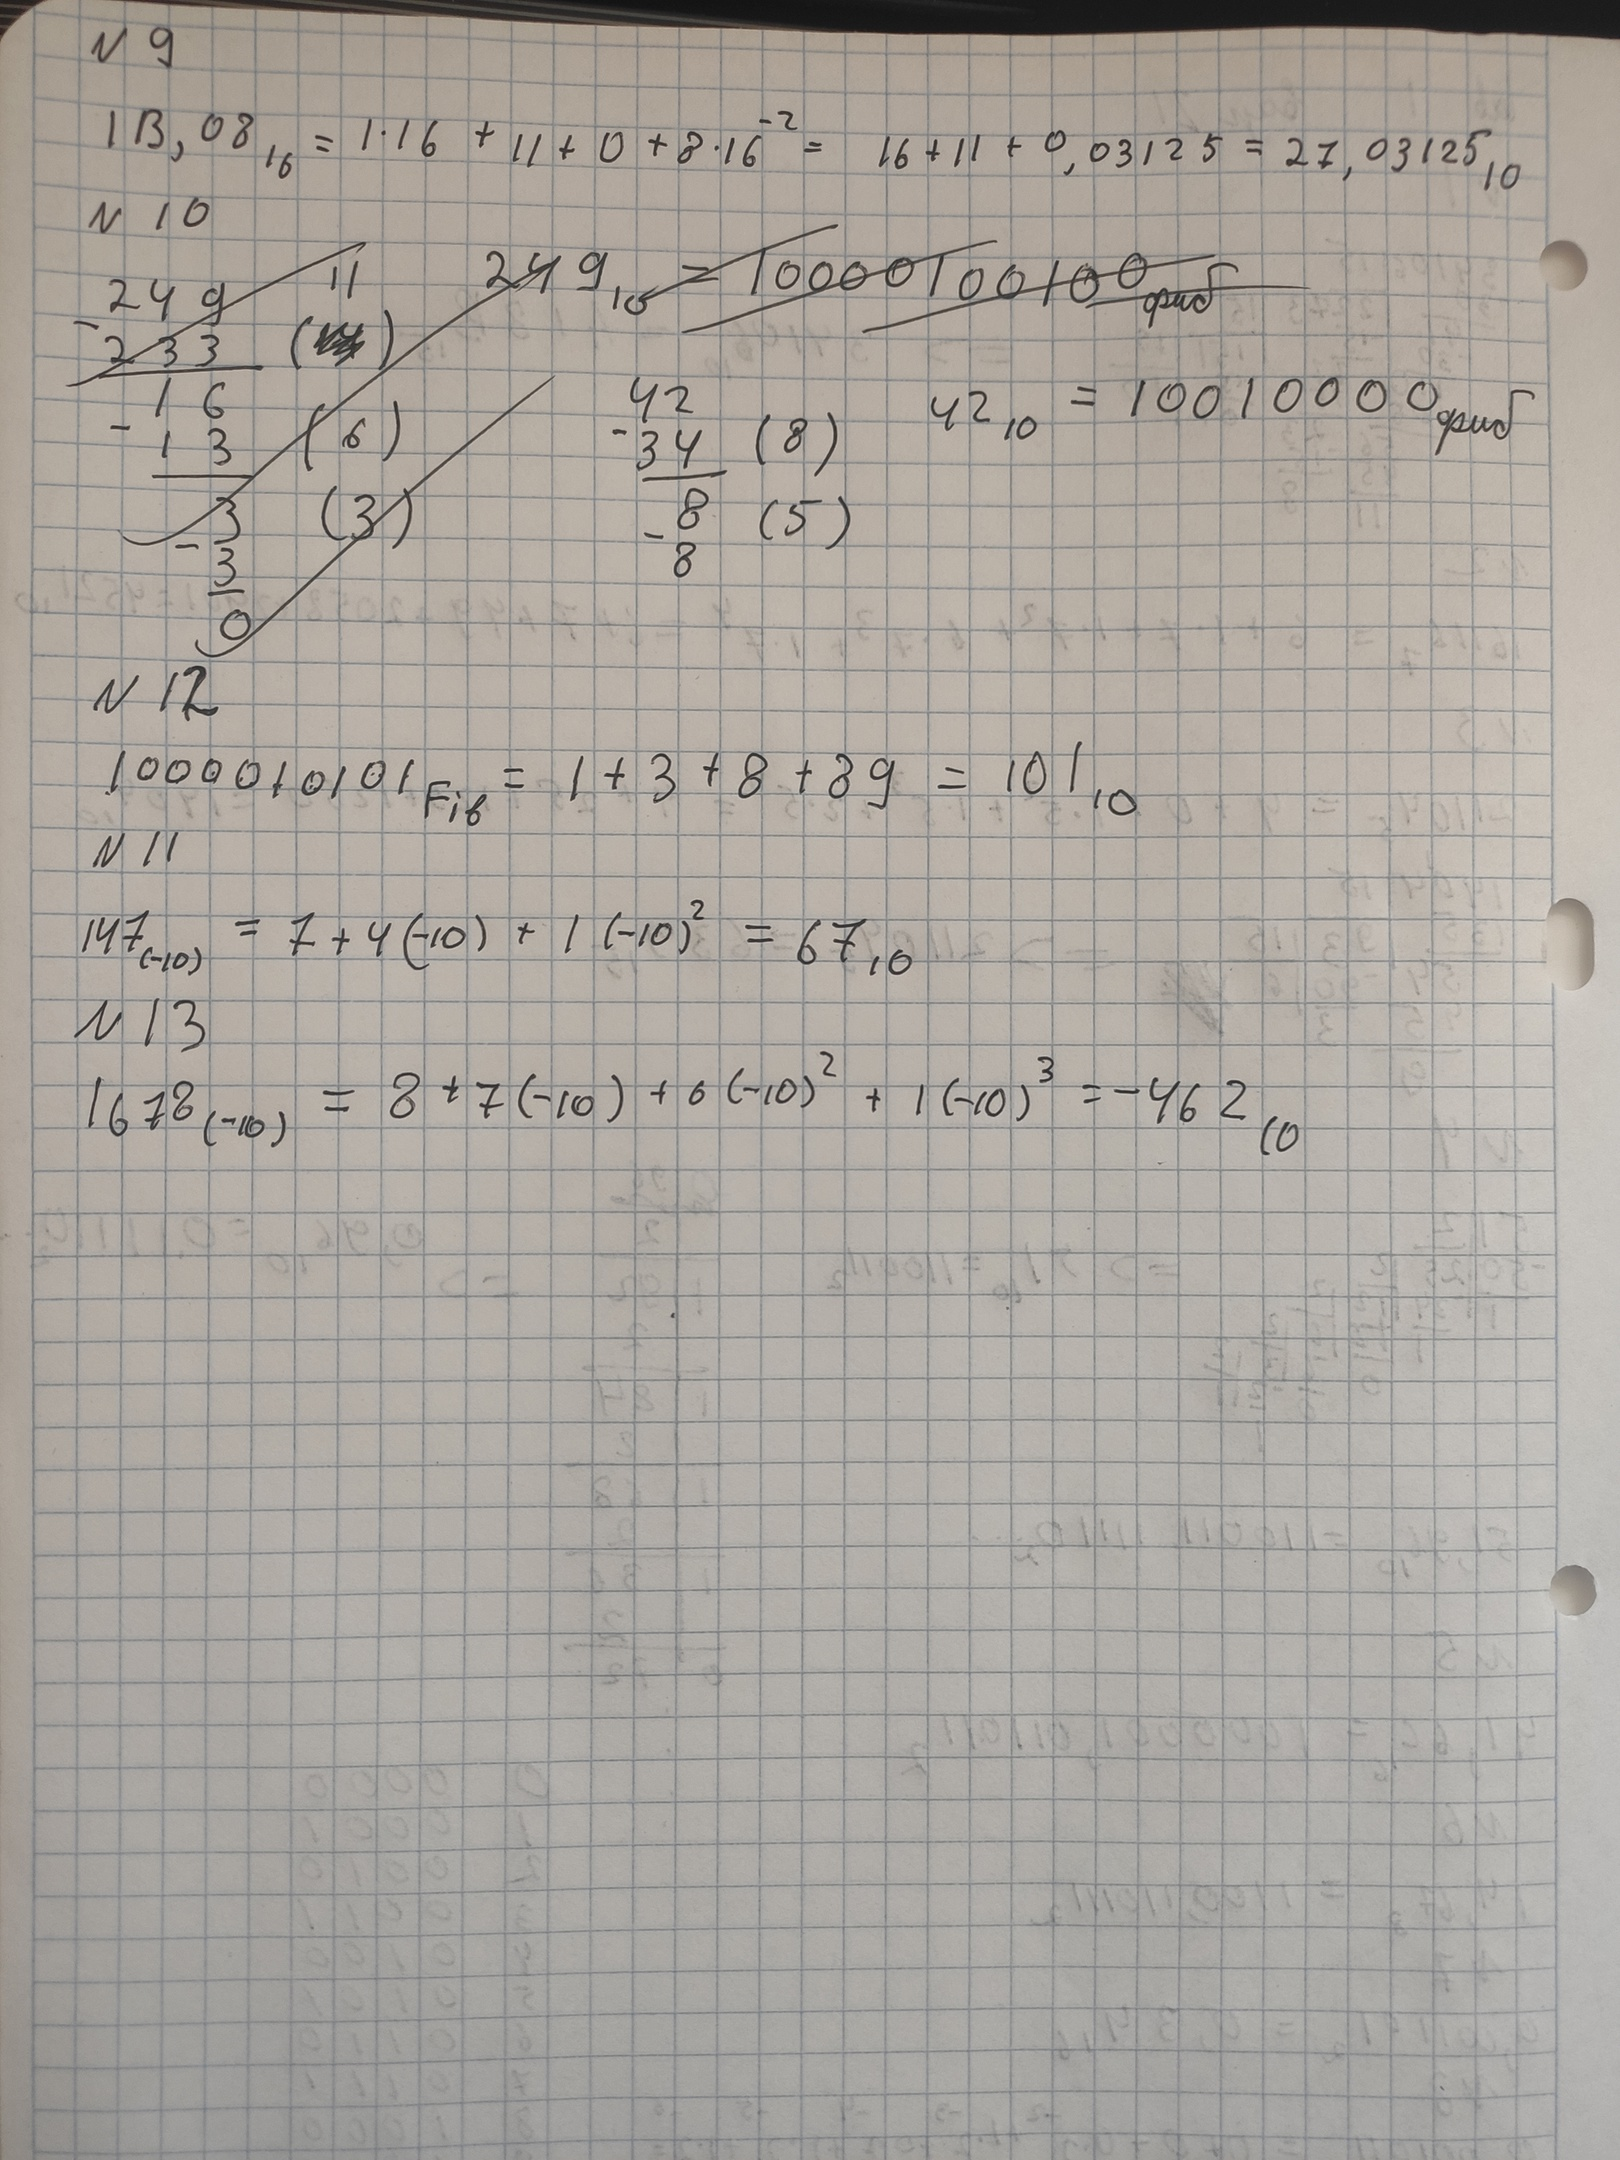 N 9
1B,08₁₆ = 1·16 + 11 + 0 + 8·16⁻² = 16 + 11 + 0,03125 = 27,03125₁₀
N 10
249 11 249₁₀ = 10000100100фиб
- 233 ( )
16
- 13 (6)
3 (3)
- 3
0
42 42₁₀ = 10010000фиб
- 34 (8)
8 (5)
- 8
N 12
1000010101Fib = 1 + 3 + 8 + 89 = 101₁₀
N 11
147(-10) = 7 + 4(-10) + 1(-10)² = 67₁₀
N 13
1678(-10) = 8 + 7(-10) + 6(-10)² + 1(-10)³ = -462₁₀